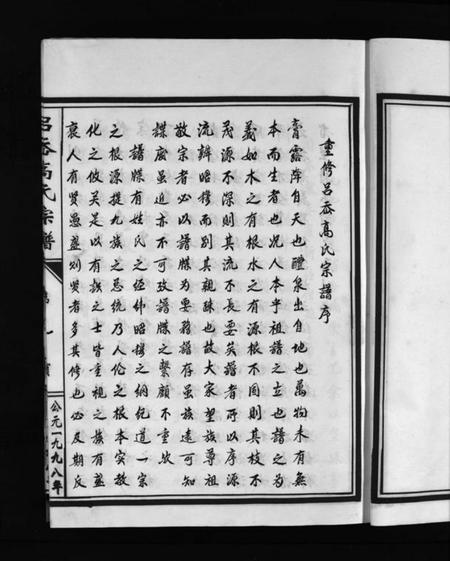 重修呂岙高氏宗譜序
膏露降自天也醴泉出自地也萬物未有無
本而生者也况人本乎祖譜之立也譜之為
義如水之有根水之有源根不固則其枝不
茂源不深則其流不長要矣譜者所以序源
流辨昭穆而別其親疎也故大家望族尊祖
敬宗者必以譜牒為要務譜存雖族遠可知
譜廢雖近亦不可攷譜牒之繫顧不重歟
譜牒有姓氏之經仲昭穆之綱紀道一宗
之根源提九族之總統乃人倫之根本實教
化之攸關是以有族之士皆重視之族有盛
衰人有賢愚盛則賢者多其修也必及期反
呂岙高氏宗譜
公元一九九八年